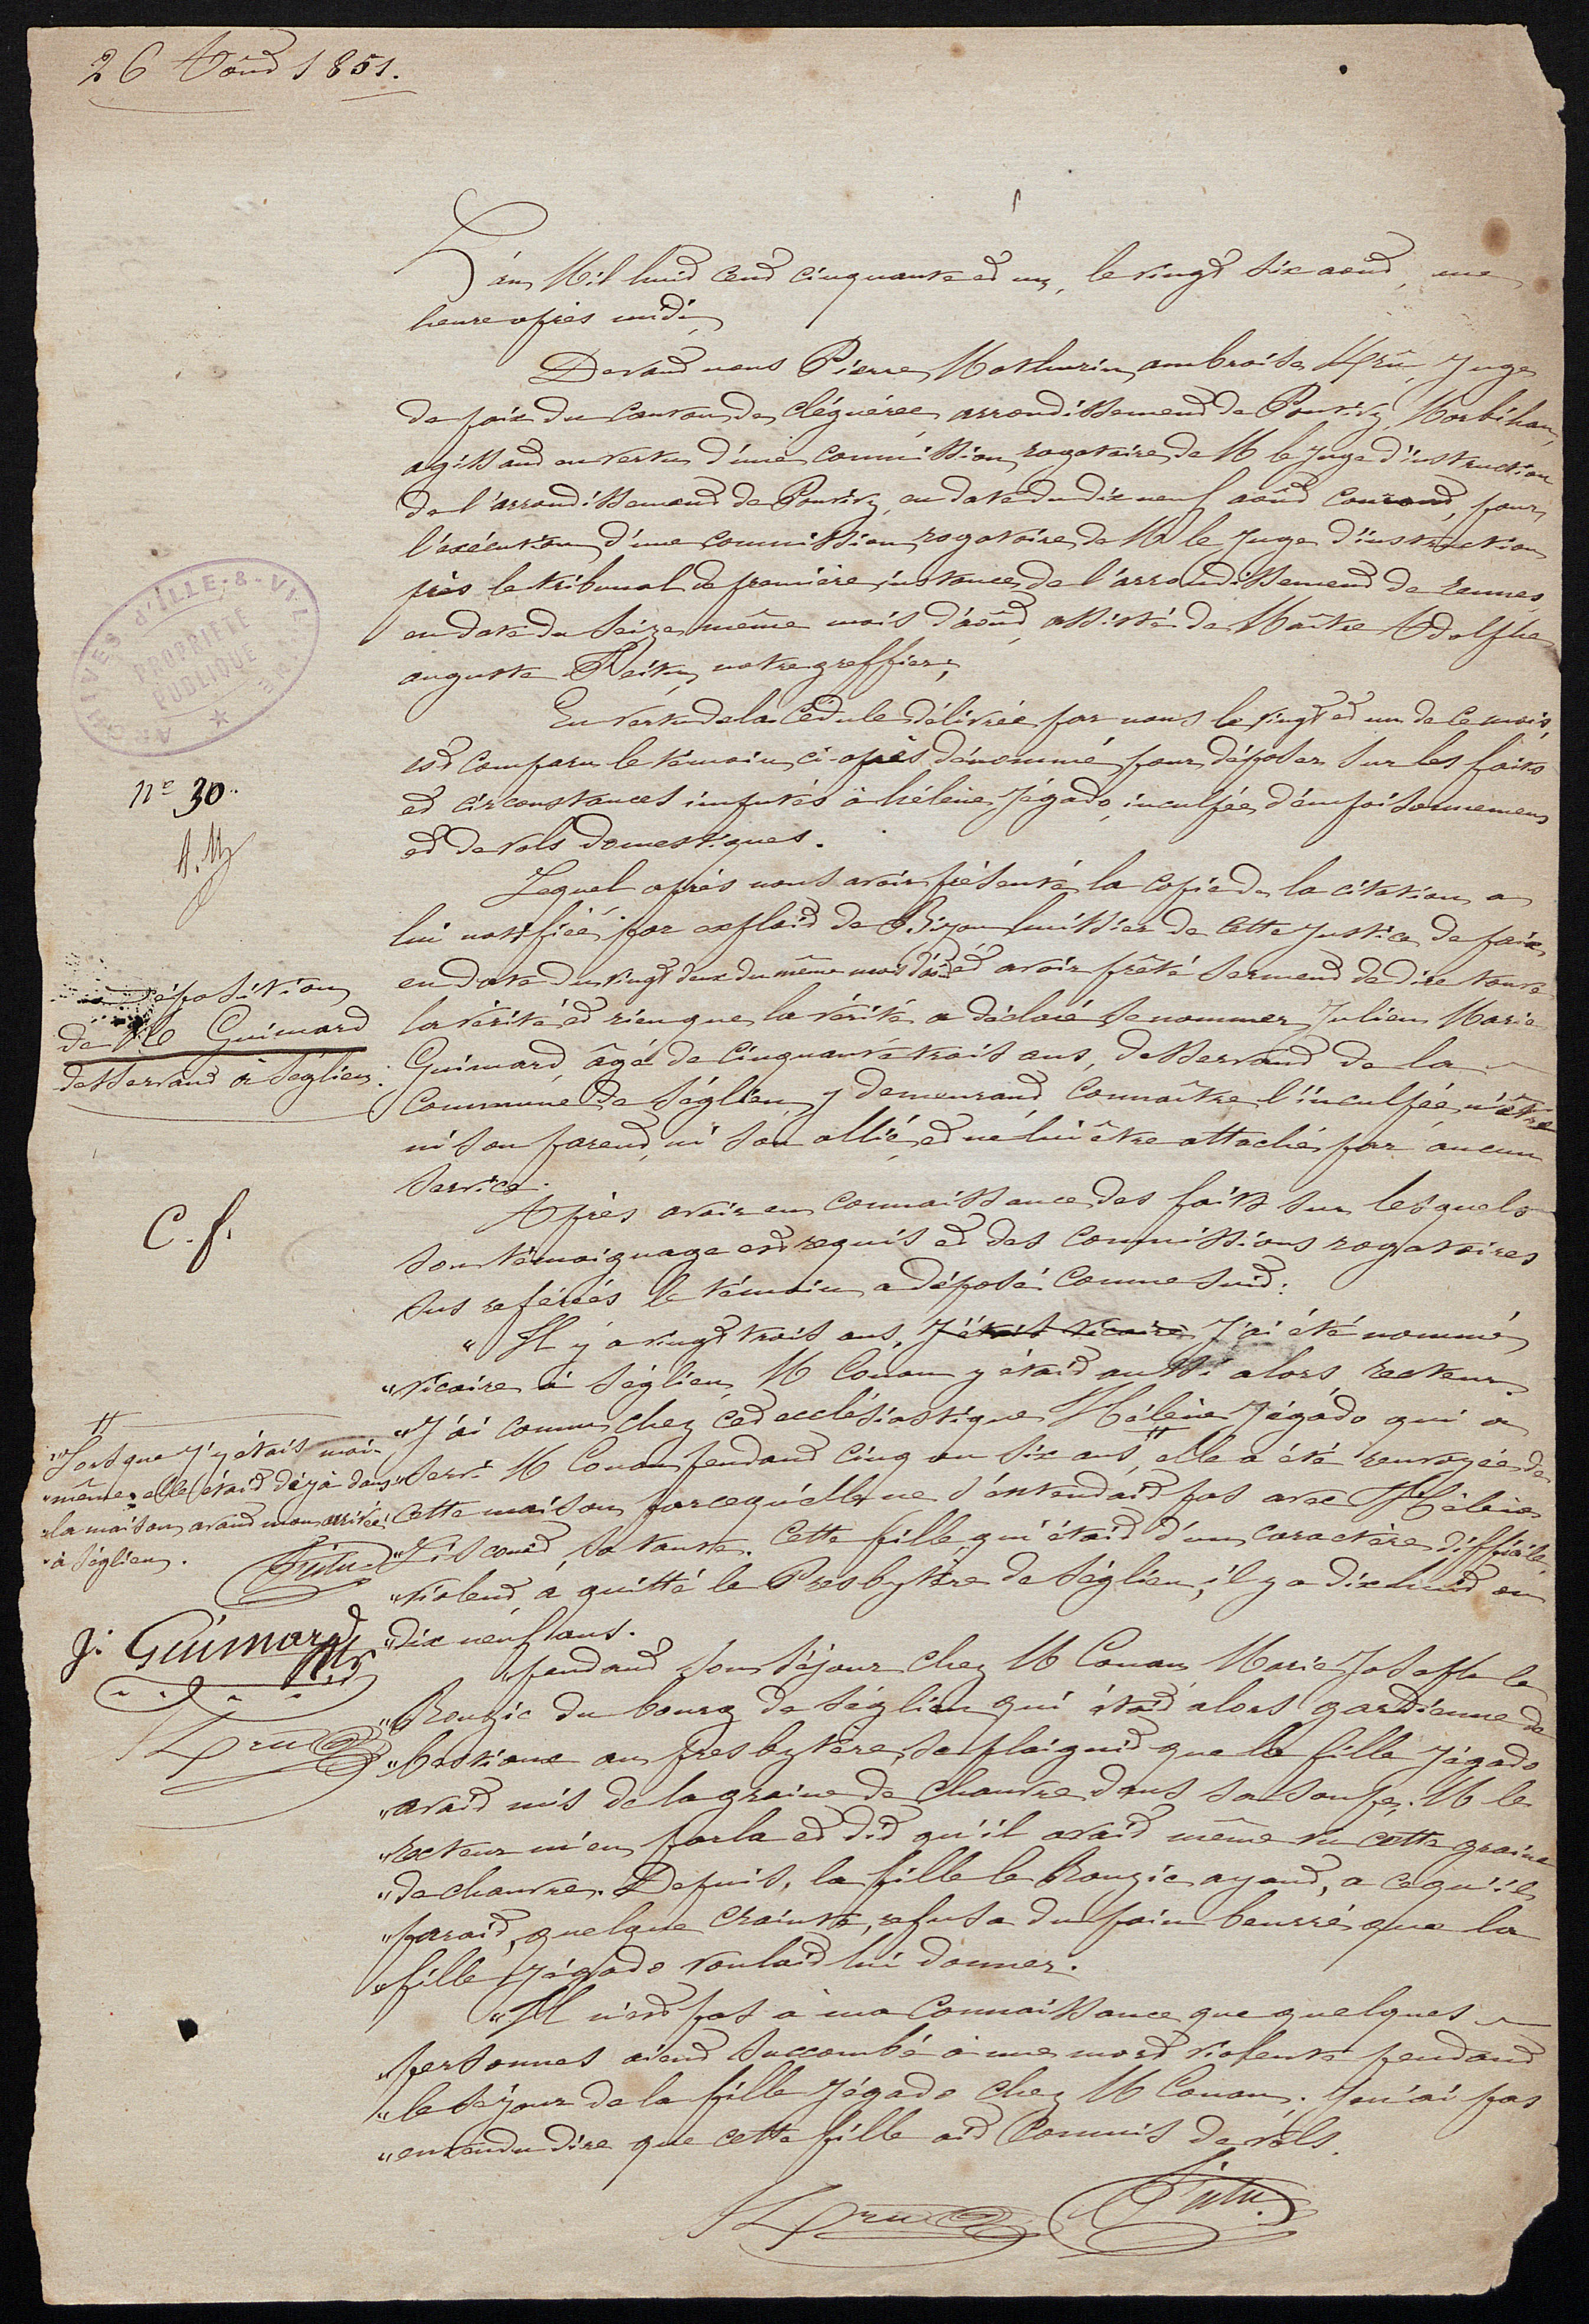 26 Août 1851.
L'an Mil huit cent cinquante et un, le vingt six août, une
heure après midi,
Devant nous Pierre Mathurin ambroise Juge
de paix du canton de Cléguérec, arrondissement de Pontivy, Morbihan,
agissant en vertu d'une commission rogatoire de M le Juge d'instruction
de l'arrondissement de Pontivy, en date du dix neuf août courant, pour
l'exécution d'une commission rogatoire de M le Juge d'instruction
près le tribunal de première instance de l'arrondissement de rennes,
en date du seize même mois d'août, assisté de Maître Adolphe
auguste notre greffier;
En vertu de la Cédule délivrée par nous le vingt et un de ce mois,
est comparu le témoin ci-après dénommé pour déposer sur les faits
et circonstances imputés à hélène Jégado, inculpée d'empoisonnemens
et de vols domestiques.
Lequel après nous avoir présenté la copie de la citation a
lui notifiée par exploit de huissier de cette Justice de paix,
en date du vingt deux du même mois d'août et avoir prêté serment de dire toute
la vérité et rien que la vérité a déclaré se nommer Julien Marie
Guimard, âgé de cinquante trois ans, desservant de la
commune de Séglien, y demeurant, connaître l'inculpée, n'être
ni son parent, ni son allié, et ne lui être attaché par aucun
service.
Après avoir eu connaissance des faits sur lesquels
son témoignage est requis et des commissions rogatoires
sus referées le témoin a déposé comme suit:
" Il y a vingt trois ans, j'étais vicaire J'ai été nommé
" vicaire à Séglien, M Conan y était aussi alors recteur.
" J'ai connu chez cet ecclésiastique Hélène Jégado qui a
" servi M Conan pendant cinq ou six ans # elle a été renvoyée de
" cette maison parcequ'elle ne s'entendait pas avec Hélène
" Liscouet, sa tante. Cette fille, qui était d'un caractère difficile,
" violent, a quitté le Presbytère de Séglien, il y a dix huit ou
" dix neuf ans.
" pendant son séjour chez M Conan, Marie Josephe le
" Bouzic du bourg de Séglien qui était alors gardienne de
" bestiaux au presbytère, se plaignit que la fille Jégado
" avait mis de la graine de chanvre dans sa soupe. M le
" recteur m'en parla et dit qu'il avait même vu cette graine
" de chanvre. Depuis, la fille le Bouzic ayant, a ce qu'il
" parait, quelque crainte, refusa du pain beurré que la
" fille Jégado voulait lui donner.
" Il n'est pas à ma connaissance que quelques
" personnes aient succombé à une mort violente pendant
" le séjour de la fille Jégado chez M Conan. Je n'ai pas
" entendu dire que cette fille ait commis de vols.
ARCHIVES D'ILLE-&-VILAINE
PROPRIETE
PUBLIQUE
n° 30.
Déposition
de M Guimard
desservant à Séglien.
C. f.
#
" Lorsque j'y étais moi
" même, elle était déjà dans
" la maison avant mon arrivée
" à Séglien.
J. Guimard